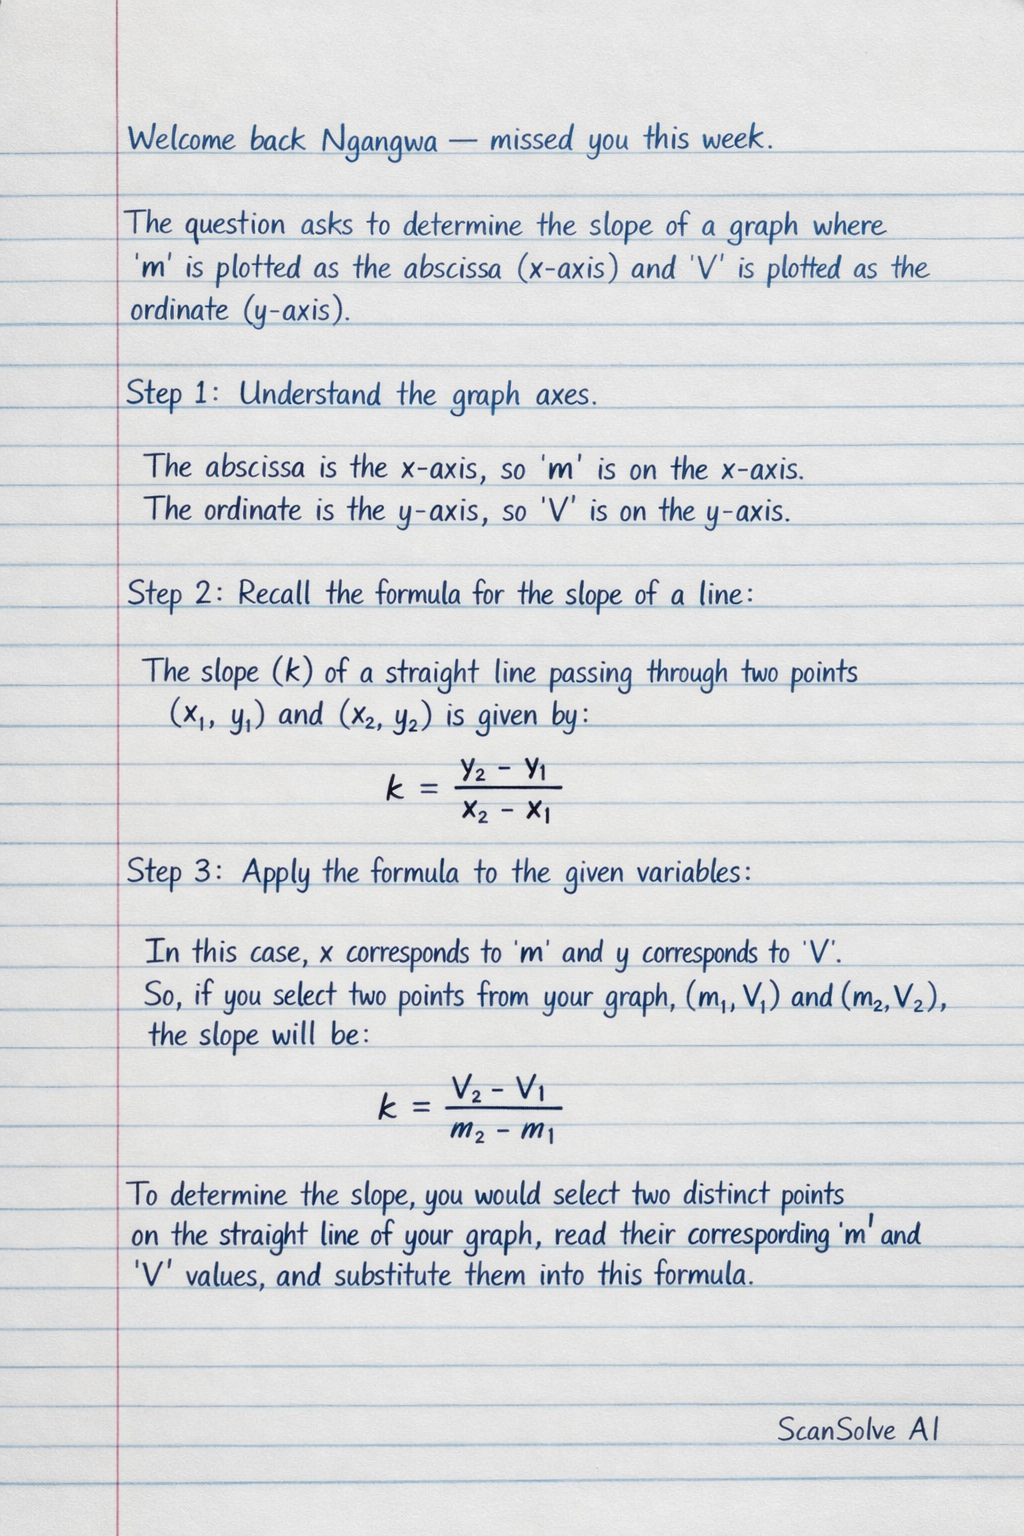 Welcome back Ngangwa — missed you this week.
The question asks to determine the slope of a graph where
'm' is plotted as the abscissa (x-axis) and 'V' is plotted as the
ordinate (y-axis).
Step 1: Understand the graph axes.
The abscissa is the x-axis, so 'm' is on the x-axis.
The ordinate is the y-axis, so 'V' is on the y-axis.
Step 2: Recall the formula for the slope of a line:
The slope (k) of a straight line passing through two points
(x₁, y₁) and (x₂, y₂) is given by:
k = (y₂ - y₁) / (x₂ - x₁)
Step 3: Apply the formula to the given variables:
In this case, x corresponds to 'm' and y corresponds to 'V'.
So, if you select two points from your graph, (m₁, V₁) and (m₂, V₂),
the slope will be:
k = (V₂ - V₁) / (m₂ - m₁)
To determine the slope, you would select two distinct points
on the straight line of your graph, read their corresponding 'm' and
'V' values, and substitute them into this formula.
ScanSolve AI